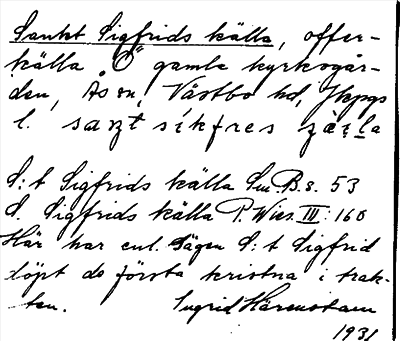 Sankt Sigfrids källa, offer-
källa Ö gamla kyrkogår-
den, Ås sn, Västbo hd, Jkpgs
l. saŋt sikfres zæla
S:t Sigfrids källa Sm.B.s. 53
S. Sigfrids källa P. Wies. III: 160
Här har enl. sägen S:t Sigfrid
döpt de första kristna i trak-
ten. Ingrid Härenstam
1931